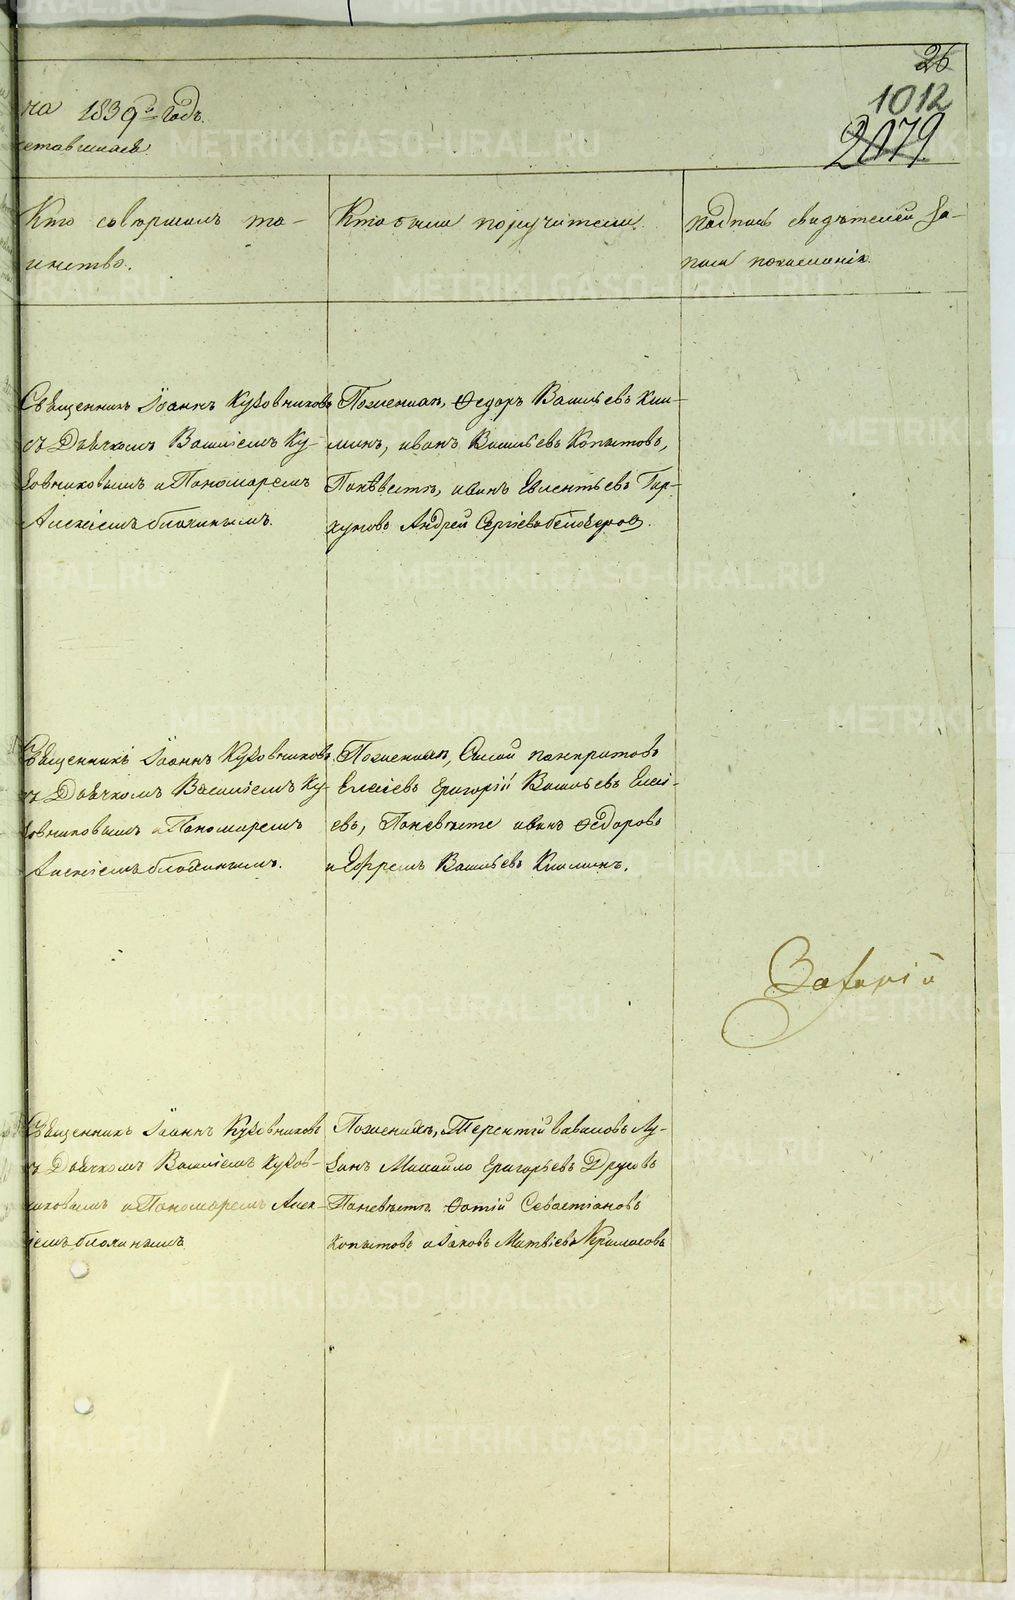 26
1012
2079
на 1839й годъ
Кто совершалъ та-
инство.
Кто были поручители.
Подпись свидѣтелей за-
писи по желанію
Священникъ Іоаннъ Кузовниковъ
съ Дьячкомъ Василіемъ Ку-
зовниковымъ и Пономаремъ
Алексіемъ Блохинымъ.
По женихѣ, Ѳедоръ Васильевъ Ким-
минъ, иванъ Васильевъ Копытовъ,
По невѣстѣ, иванъ
Андрей Сергіевъ
Священникъ Іоаннъ Кузовниковъ
съ Дьячкомъ Василіемъ Ку-
зовниковымъ и Пономаремъ
Алексіемъ Блохинымъ.
По женихѣ, панкратовъ
Елесіевъ Григорій Васильевъ Елесі-
евъ, По невѣсте иванъ Ѳедоровъ
и Ефремъ Васильевъ
Захарій
Священникъ Іоаннъ Кузовниковъ
съ Дьячкомъ Василіемъ Кузов-
никовымъ и Пономаремъ Алек-
сіемъ Блохинымъ
По женихѣ, Терентій Вавиловъ Лу-
Михайло Григорьевъ
По невѣстѣ Фотій Севастіановъ
Копытовъ и Іаковъ Матвіевъ
METRIKI.GASO-URAL.RU